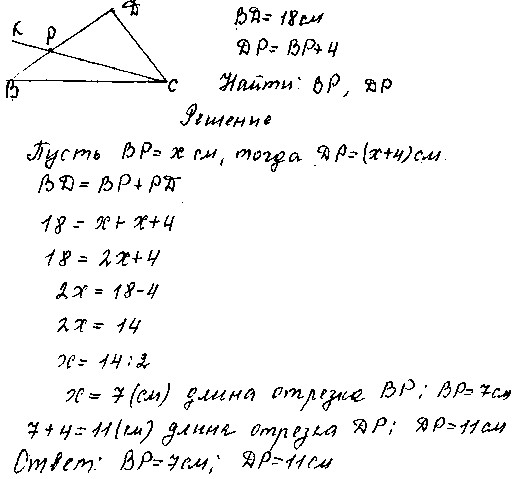 К
Р
D
В
С
BD = 18 см
DP = BP + 4
Найти: BP, DP
Решение
Пусть BP = x см, тогда DP = (x+4) см.
BD = BP + PD
18 = x + x + 4
18 = 2x + 4
2x = 18 - 4
2x = 14
x = 14 : 2
x = 7 (см) длина отрезка BP; BP = 7 см
7 + 4 = 11 (см) длина отрезка DP; DP = 11 см
Ответ: BP = 7 см; DP = 11 см